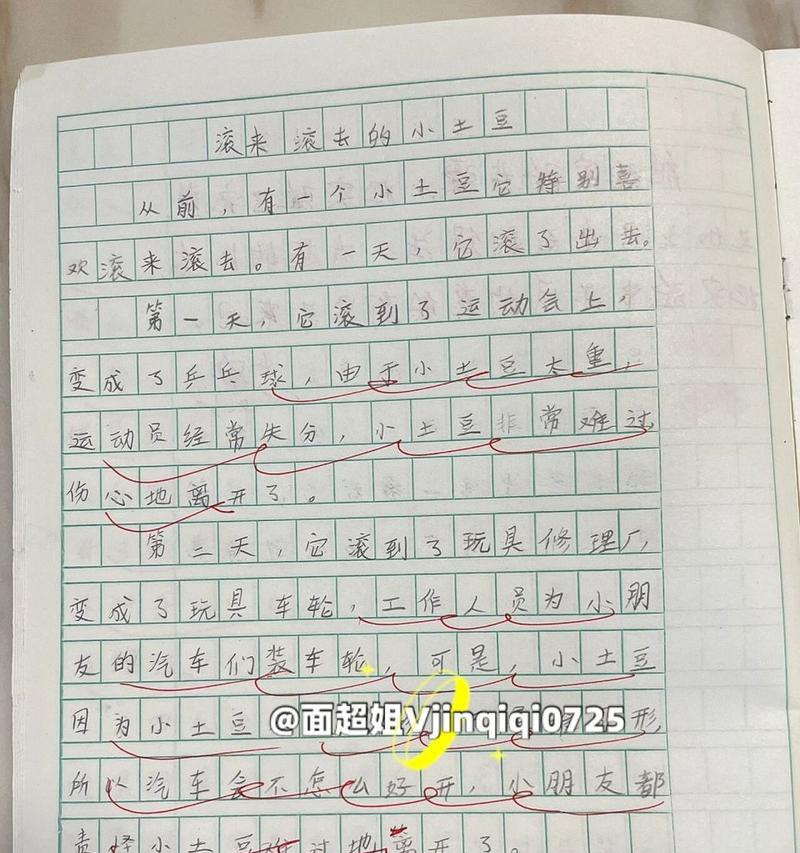 滚来滚去的小土豆
从前，有一个小土豆它特别喜
欢滚来滚去。有一天，它滚了出去。
第一天，它滚到了运动会上，
变成了乒乓球，由于小土豆太重，
运动员经常失分，小土豆非常难过
伤心地离开了。
第二天，它滚到了玩具修理厂，
变成了玩具车轮，工作人员为小朋
友的汽车们装车轮，可是，小土豆
因为小土豆 形
@面超姐Vjinqiqi0725
所以汽车会不怎么好开，小朋友都
责怪小土豆难过地离开了。